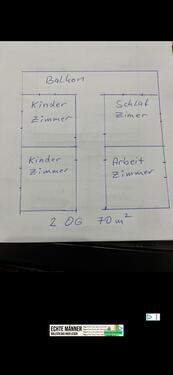 Balkon
Kinder
Zimmer
Schlaf
Zimer
Kinder
Zimmer
Arbeit
Zimmer
2 OG 70 m²
ECHTE MÄNNER